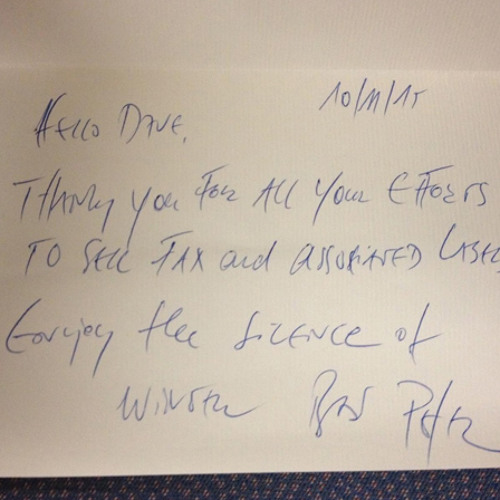 10/11/15
Hello Dave,
Thank you for all your efforts
to sell FAX and associated Label
Enjoy the silence of
winter Peter